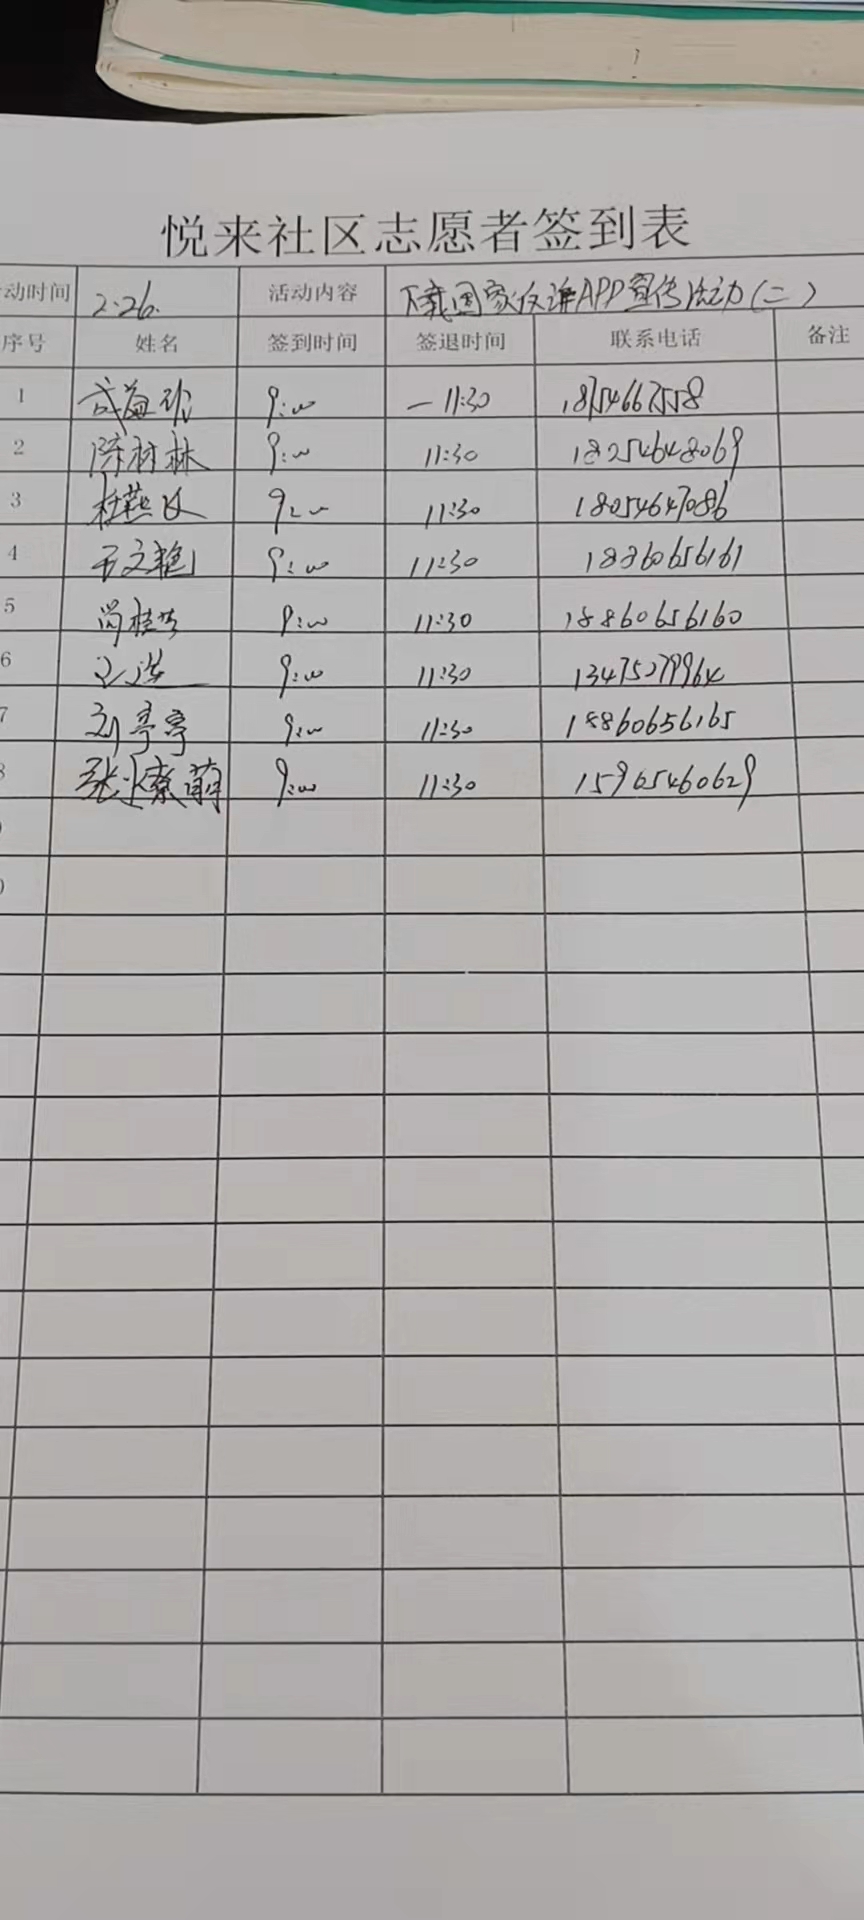 悦来社区志愿者签到表
动时间 2.26. 活动内容 下载国家反诈APP宣传活动(二)
序号 姓名 签到时间 签退时间 联系电话 备注
1 9:00 — 11:30 18754667558
2 陈树林 9:00 11:30 18254648069
3 杜燕 9:00 11:30 18054647086
4 王文艳 9:00 11:30 18860656161
5 尚桂芳 9:00 11:30 18860656160
6 9:00 11:30 13475279964
7 刘亭亭 9:00 11:30 18860656165
8 张 萌 9:00 11:30 15965460629